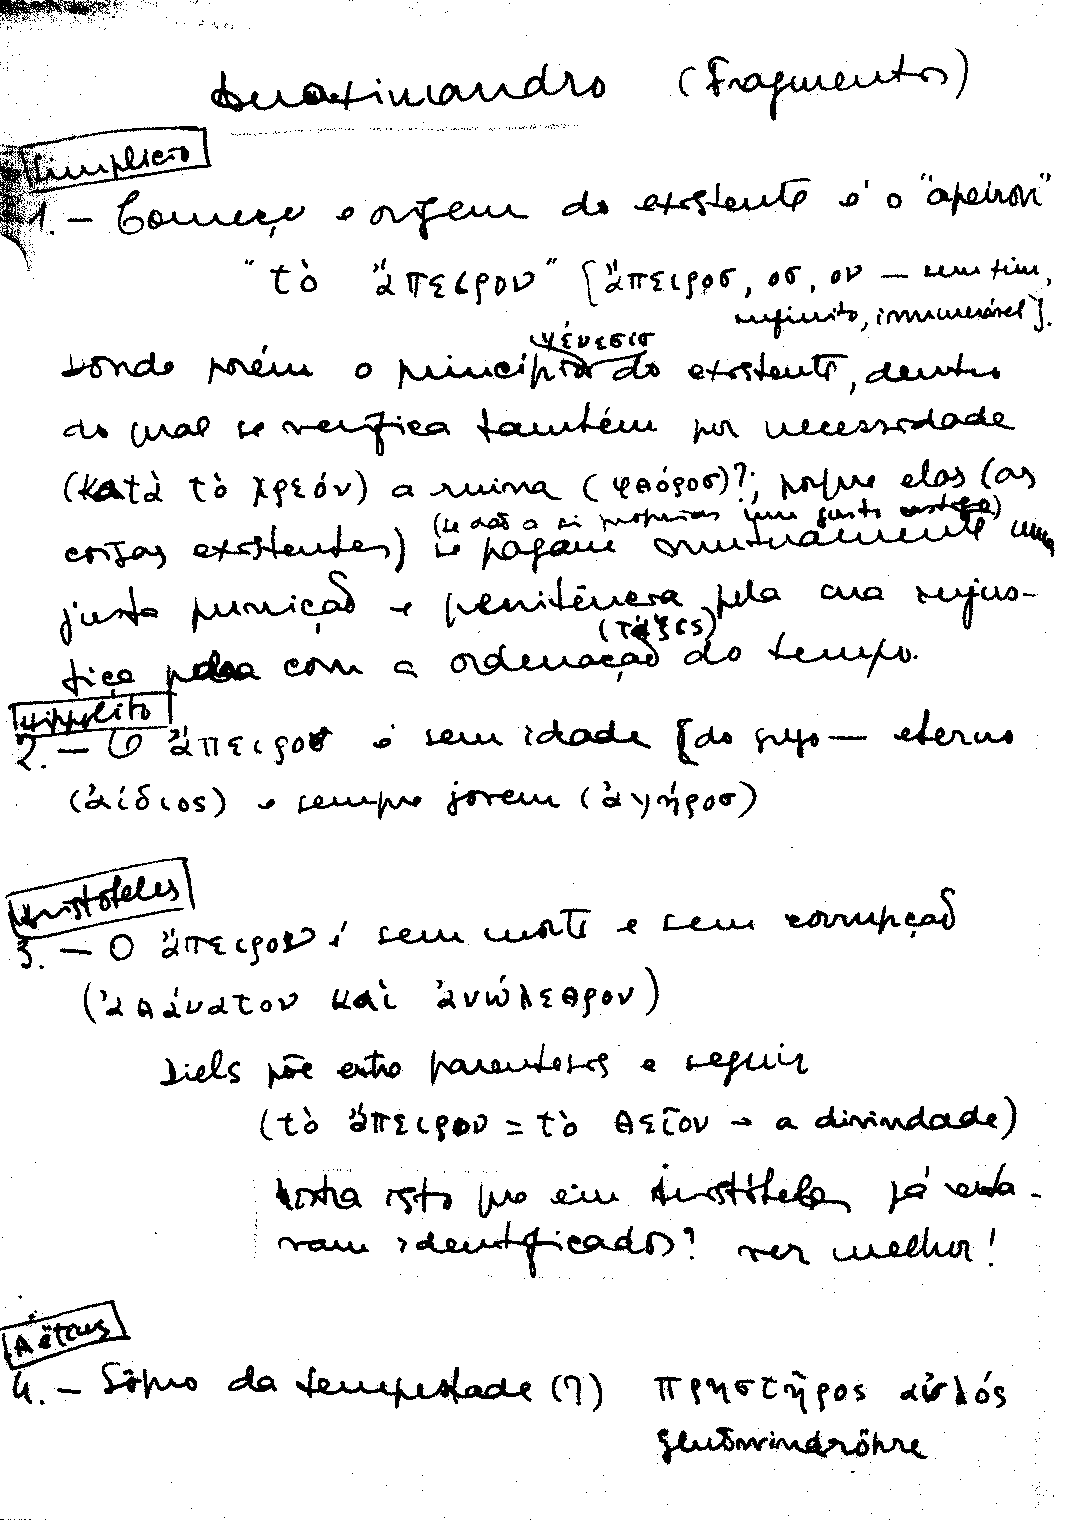 Anaximandro (Fragmentos)
Simplicio
1. — Começo e origem do existente é o "apeiron"
"τὸ ἄπειρον" [ἄπειροσ, οσ, ον — sem fim,
infinito, innumerável].
γένεσισ
Donde porém o princípio do existente, dentro
do qual se verifica também por necessidade
(κατὰ τὸ χρεόν) a ruina (φθόροσ)?, porque elas (as
(se dão a si proprias um justo castigo)
coisas existentes) se pagam mutuamente uma
justa punição e penitência pela sua injus-
(τάξες)
tiça com a ordenação do tempo.
Hippolito
2. — O ἄπειρον é sem idade [do grego — eterno
(ἀίδιος) e sempre jovem (ἀγήροσ)
Aristoteles
3. — O ἄπειρον é sem morte e sem corrupção
(ἀθάνατον καὶ ἀνώλεθρον)
Diels põe entre parenteses a seguir
(τὸ ἄπειρον = τὸ θεῖον → a divindade)
isto que em Aristóteles já esta-
vam identificados? ver melhor!
Aëtius
4. — Sôpro da tempestade (?) πρηστῆρος αὐλός
glutwindröhre